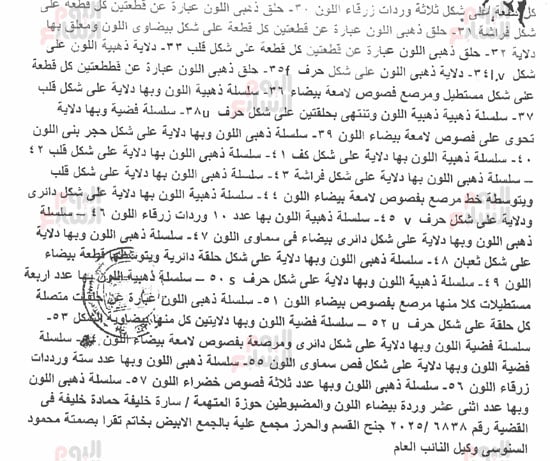 كل قطعة على شكل ثلاثة وردات زرقاء اللون ٣٠- حلق ذهبى اللون عبارة عن قطعتين كل قطعة على
شكل فراشة ٣١- حلق ذهبى اللون عبارة عن قطعتين كل قطعة على شكل بيضاوى اللون ومعلق بها
دلاية ٣٢- حلق ذهبى اللون عبارة عن قطعتين كل قطعة على شكل قلب ٣٣- دلاية ذهبية اللون على
شكل v ٣٤- دلاية ذهبى اللون على شكل حرف f ٣٥- حلق ذهبى اللون عبارة عن قطعطتين كل قطعة
على شكل مستطيل ومرصع فصوص لامعة بيضاء ٣٦- سلسلة ذهبية اللون وبها دلاية على شكل قلب
٣٧- سلسلة ذهبية ذهبية اللون وتنتهى بحلقتين على شكل حرف u ٣٨- سلسلة فضية وبها دلاية
تحوى على فصوص لامعة بيضاء اللون ٣٩- سلسلة ذهبى اللون وبها دلاية على شكل حجر بنى اللون
٤٠- سلسلة ذهبية اللون وبها دلاية على شكل كف ٤١- سلسلة ذهبى اللون بها دلاية على شكل قلب ٤٢
– سلسلة ذهبى اللون بها دلاية على شكل فراشة ٤٣- سلسلة ذهبى اللون وبها دلاية على شكل قلب
ويتوسطة خط مرصع بفصوص لامعة بيضاء اللون ٤٤- سلسلة ذهبية اللون بها دلاية على شكل دائرى
ودلاية على شكل حرف v ٤٥- سلسلة ذهبية اللون بها عدد ١٠ وردات زرقاء اللون ٤٦ – سلسلة
ذهبى اللون وبها دلاية على شكل دائرى بيضاء فى سماوى اللون ٤٧- سلسلة ذهبى اللون وبها دلاية
على شكل ثعبان ٤٨- سلسلة ذهبى اللون وبها دلاية على شكل حلقة دائرية ويتوسطها قطعة بيضاء
اللون ٤٩- سلسلة ذهبية اللون وبها دلاية على شكل حرف s ٥٠ – سلسلة ذهبية اللون بها عدد اربعة
مستطيلات كلا منها مرصع بفصوص بيضاء اللون ٥١- سلسلة ذهبى اللون عبارة عن حلقات متصلة
كل حلقة على شكل حرف u ٥٢ – سلسلة فضية اللون وبها دلايتين كل منها بيضاوية الشكل ٥٣-
سلسلة فضية اللون وبها دلاية على شكل دائرى ومرصعة بفصوص لامعة بيضاء اللون ٥٤- سلسلة
فضية اللون وبها دلاية على شكل فص سماوى اللون ٥٥- سلسلة ذهبى اللون وبها عدد ستة ورددات
زرقاء اللون ٥٦- سلسلة ذهبى اللون وبها عدد ثلاثة فصوص خضراء اللون ٥٧- سلسلة ذهبى اللون
وبها عدد اثنى عشر وردة بيضاء اللون والمضبوطين حوزة المتهمة / سارة خليفة حمادة خليفة فى
القضية رقم ٦٨٣٨ /٢٠٢٥ جنح القسم والحرز مجمع علية بالجمع الابيض بخاتم تقرا بصمتة محمود
السنوسى وكيل النائب العام
اليوم السابع